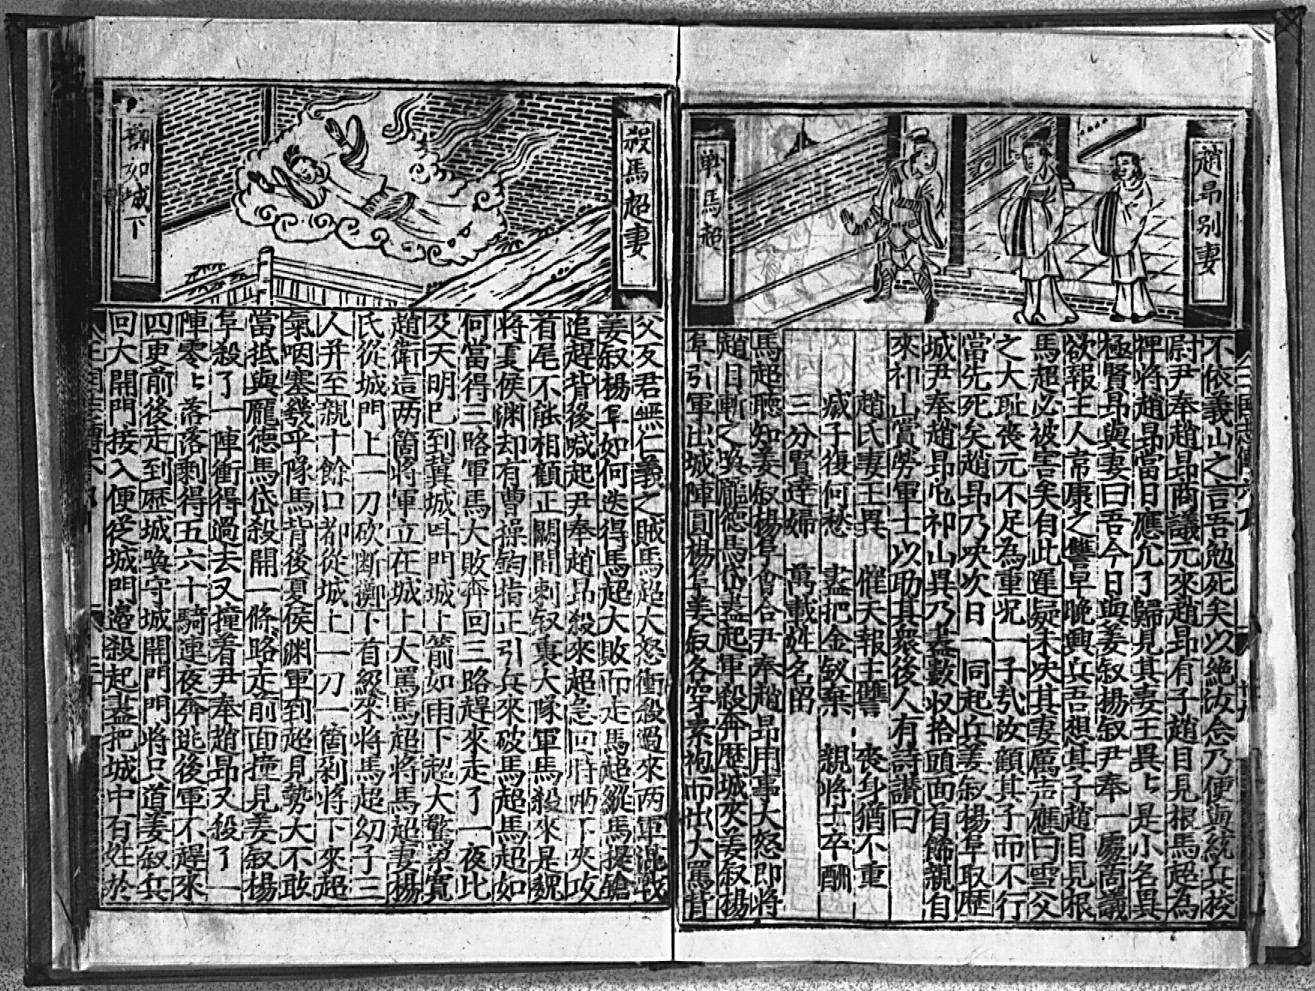 趙昂別妻
戰馬超
不依義山之言吾勉死矣以絶汝念乃便與統兵校
尉尹奉趙昂商議元來趙昂有子趙目見根馬超為
裨將趙昂當日應允了歸見其妻王異〻是小名異
極賢昂與妻曰吾今日與姜叙揚叙尹奉一處商議
欲報主人常康之讐早晚興兵吾想其子趙目見根
馬超必被害矣有此遲疑未决其妻厲声應曰雪父
之大耻喪元不足為重况一子㢤汝顧其子而不行
當先死矣趙昂乃决次日一同起兵姜叙揚阜取歷
城尹奉趙昂屯祁山異乃盡數収拾頭面首餙親自
來祁山賞勞軍士以助其衆後人有詩讃曰
趙氏妻王異 催天報主讐 喪身猶不重
戚子復何愁 盡把金釵棄 親將士卒酬
三分賢達婦 萬載姓名留
馬超聽知姜叙楊阜會合尹奉趙昂用事大怒即將
趙目斬之喚龐德馬岱盡起軍殺奔歷城來姜叙揚
阜引軍出城陣圓楊阜姜叙各穿素袍而出大罵背
殺馬超妻
擲如城下
父反君無仁義之賊馬超大怒衝殺過來两軍混戰
姜叙楊阜如何迭得馬超大敗而走馬超縱馬提鎗
追趕背後喊起尹奉趙昂殺來超急回時两下夾攻
首尾不能相顧正鬭間刺叙裏大隊軍馬殺來是魏
將夏侯渊却有曹操鈞指正引兵來破馬超馬超如
何當得三路軍馬大敗奔回三路趕來走了一夜比
及天明已到冀城呌門城上箭如雨下超大驚梁寬
趙衛這两箇將軍立在城上大罵馬超將馬超妻楊
氏從城門上一刀砍断擲下首級來將馬超幼子三
人并至親十餘口都從城上一刀一箇剁將下來超
氣咽塞幾乎墜馬背後夏侯渊軍到超見勢大不敢
當抵與龐德馬岱殺開一條路走前面撞見姜叙楊
阜殺了一陣衝得過去又撞着尹奉趙昂又殺了一
陣零〻落落剩得五六十騎連夜奔逃後軍不趕來
四更前後走到歷城喚守城開門門將只道姜叙兵
回大開門接入便從城門邉殺起盡把城中百姓於